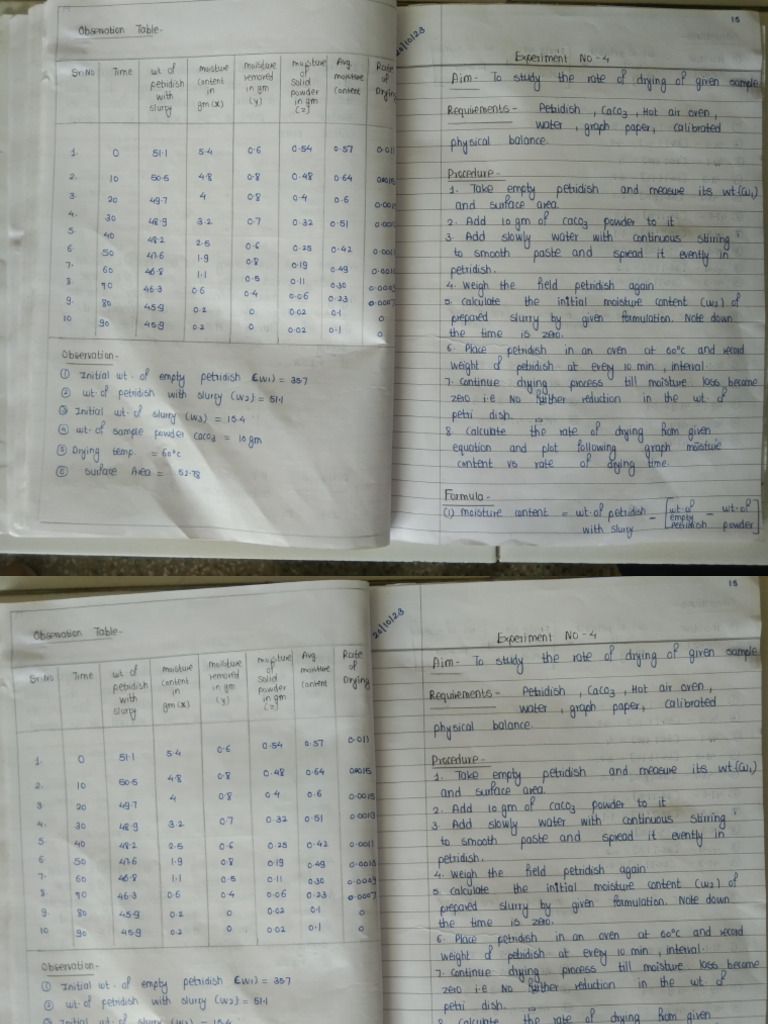 Observation Table-
Sr.No Time wt of petridish with slurry moisture content in gm (x) moisture removed in gm (y) of solid powder in gm (z) Avg. moisture content Rate of Drying
1. 0 51.1 5.4 0.6 0.54 0.57 0.011
2. 10 50.5 4.8 0.8 0.48 0.64 0.0015
3. 20 49.7 4 0.8 0.4 0.6
4. 30 48.9 3.2 0.7 0.32 0.51
5. 40 48.2 2.5 0.6 0.25 0.42
6. 50 47.6 1.9 0.8 0.19 0.49
7. 60 46.8 1.1 0.5 0.11 0.30
8. 70 46.3 0.6 0.4 0.06 0.23 0.0007
9. 80 45.9 0.2 0 0.02 0.1 0
10 90 45.9 0.2 0 0.02 0.1 0
Observation-
① Initial wt. of empty petridish (W1) = 35.7
② wt. of petridish with slurry (W2) = 51.1
③ Initial wt. of slurry (W3) = 15.4
④ wt. of sample powder caco3 = 10 gm
⑤ Drying temp. = 60°c
⑥ Surface Area = 52.78
15
20/10/23
Experiment No - 4
Aim - To study the rate of drying of given sample
Requirements - Petridish , Caco3 , Hot air oven,
water , graph paper, calibrated
physical balance.
Procedure -
1. Take empty petridish and measure its wt (w1)
and surface area.
2. Add 10 gm of caco3 powder to it
3. Add slowly water with continuous stirring
to smooth paste and spread it evently in
petridish.
4. Weigh the field petridish again
5. calculate the initial moisture content (w2) of
prepared slurry by given formulation. Note down
the time is zero.
6. Place petridish in an oven at 60°c and record
weight of petridish at every 10 min , interval.
7. continue drying process till moisture loss become
zero i.e No further reduction in the wt. of
petri dish.
8. Calculate the rate of drying from given
equation and plot following graph moisture
content vs rate of drying time.
Formula -
(1) moisture content = wt. of petridish with slurry - [wt. of empty petridish - wt. of powder]
Observation Table-
Sr.No Time wt of petridish with slurry moisture content in gm (x) moisture removed in gm (y) of solid powder in gm (z) Avg. moisture content Rate of Drying
1. 0 51.1 5.4 0.6 0.54 0.57 0.011
2. 10 50.5 4.8 0.8 0.48 0.64 0.0015
3 20 49.7 4 0.8 0.4 0.6 0.0015
4. 30 48.9 3.2 0.7 0.32 0.51 0.0013
5. 40 48.2 2.5 0.6 0.25 0.42 0.0011
6. 50 47.6 1.9 0.8 0.19 0.49
7. 60 46.8 1.1 0.5 0.11 0.30
8. 70 46.3 0.6 0.4 0.06 0.23 0.0007
9. 80 45.9 0.2 0 0.02 0.1 0
10 90 45.9 0.2 0 0.02 0.1 0
Observation-
① Initial wt. of empty petridish (W1) = 35.7
② wt. of petridish with slurry (W2) = 51.1
③ Initial wt. of slurry (W3) = 15.4
15
20/10/23
Experiment No - 4
Aim - To study the rate of drying of given sample
Requirements - Petridish , Caco3 , Hot air oven,
water , graph paper, calibrated
physical balance.
Procedure -
1. Take empty petridish and measure its wt (w1)
and surface area.
2. Add 10 gm of caco3 powder to it
3 Add slowly water with continuous stirring
to smooth paste and spread it evently in
petridish.
4. Weigh the field petridish again
5. calculate the initial moisture content (w2) of
prepared slurry by given formulation. Note down
the time is zero.
6. Place petridish in an oven at 60°c and record
weight of petridish at every 10 min , interval.
7. continue drying process till moisture loss become
zero i.e No further reduction in the wt. of
petri dish.
8 Calculate the rate of drying from given